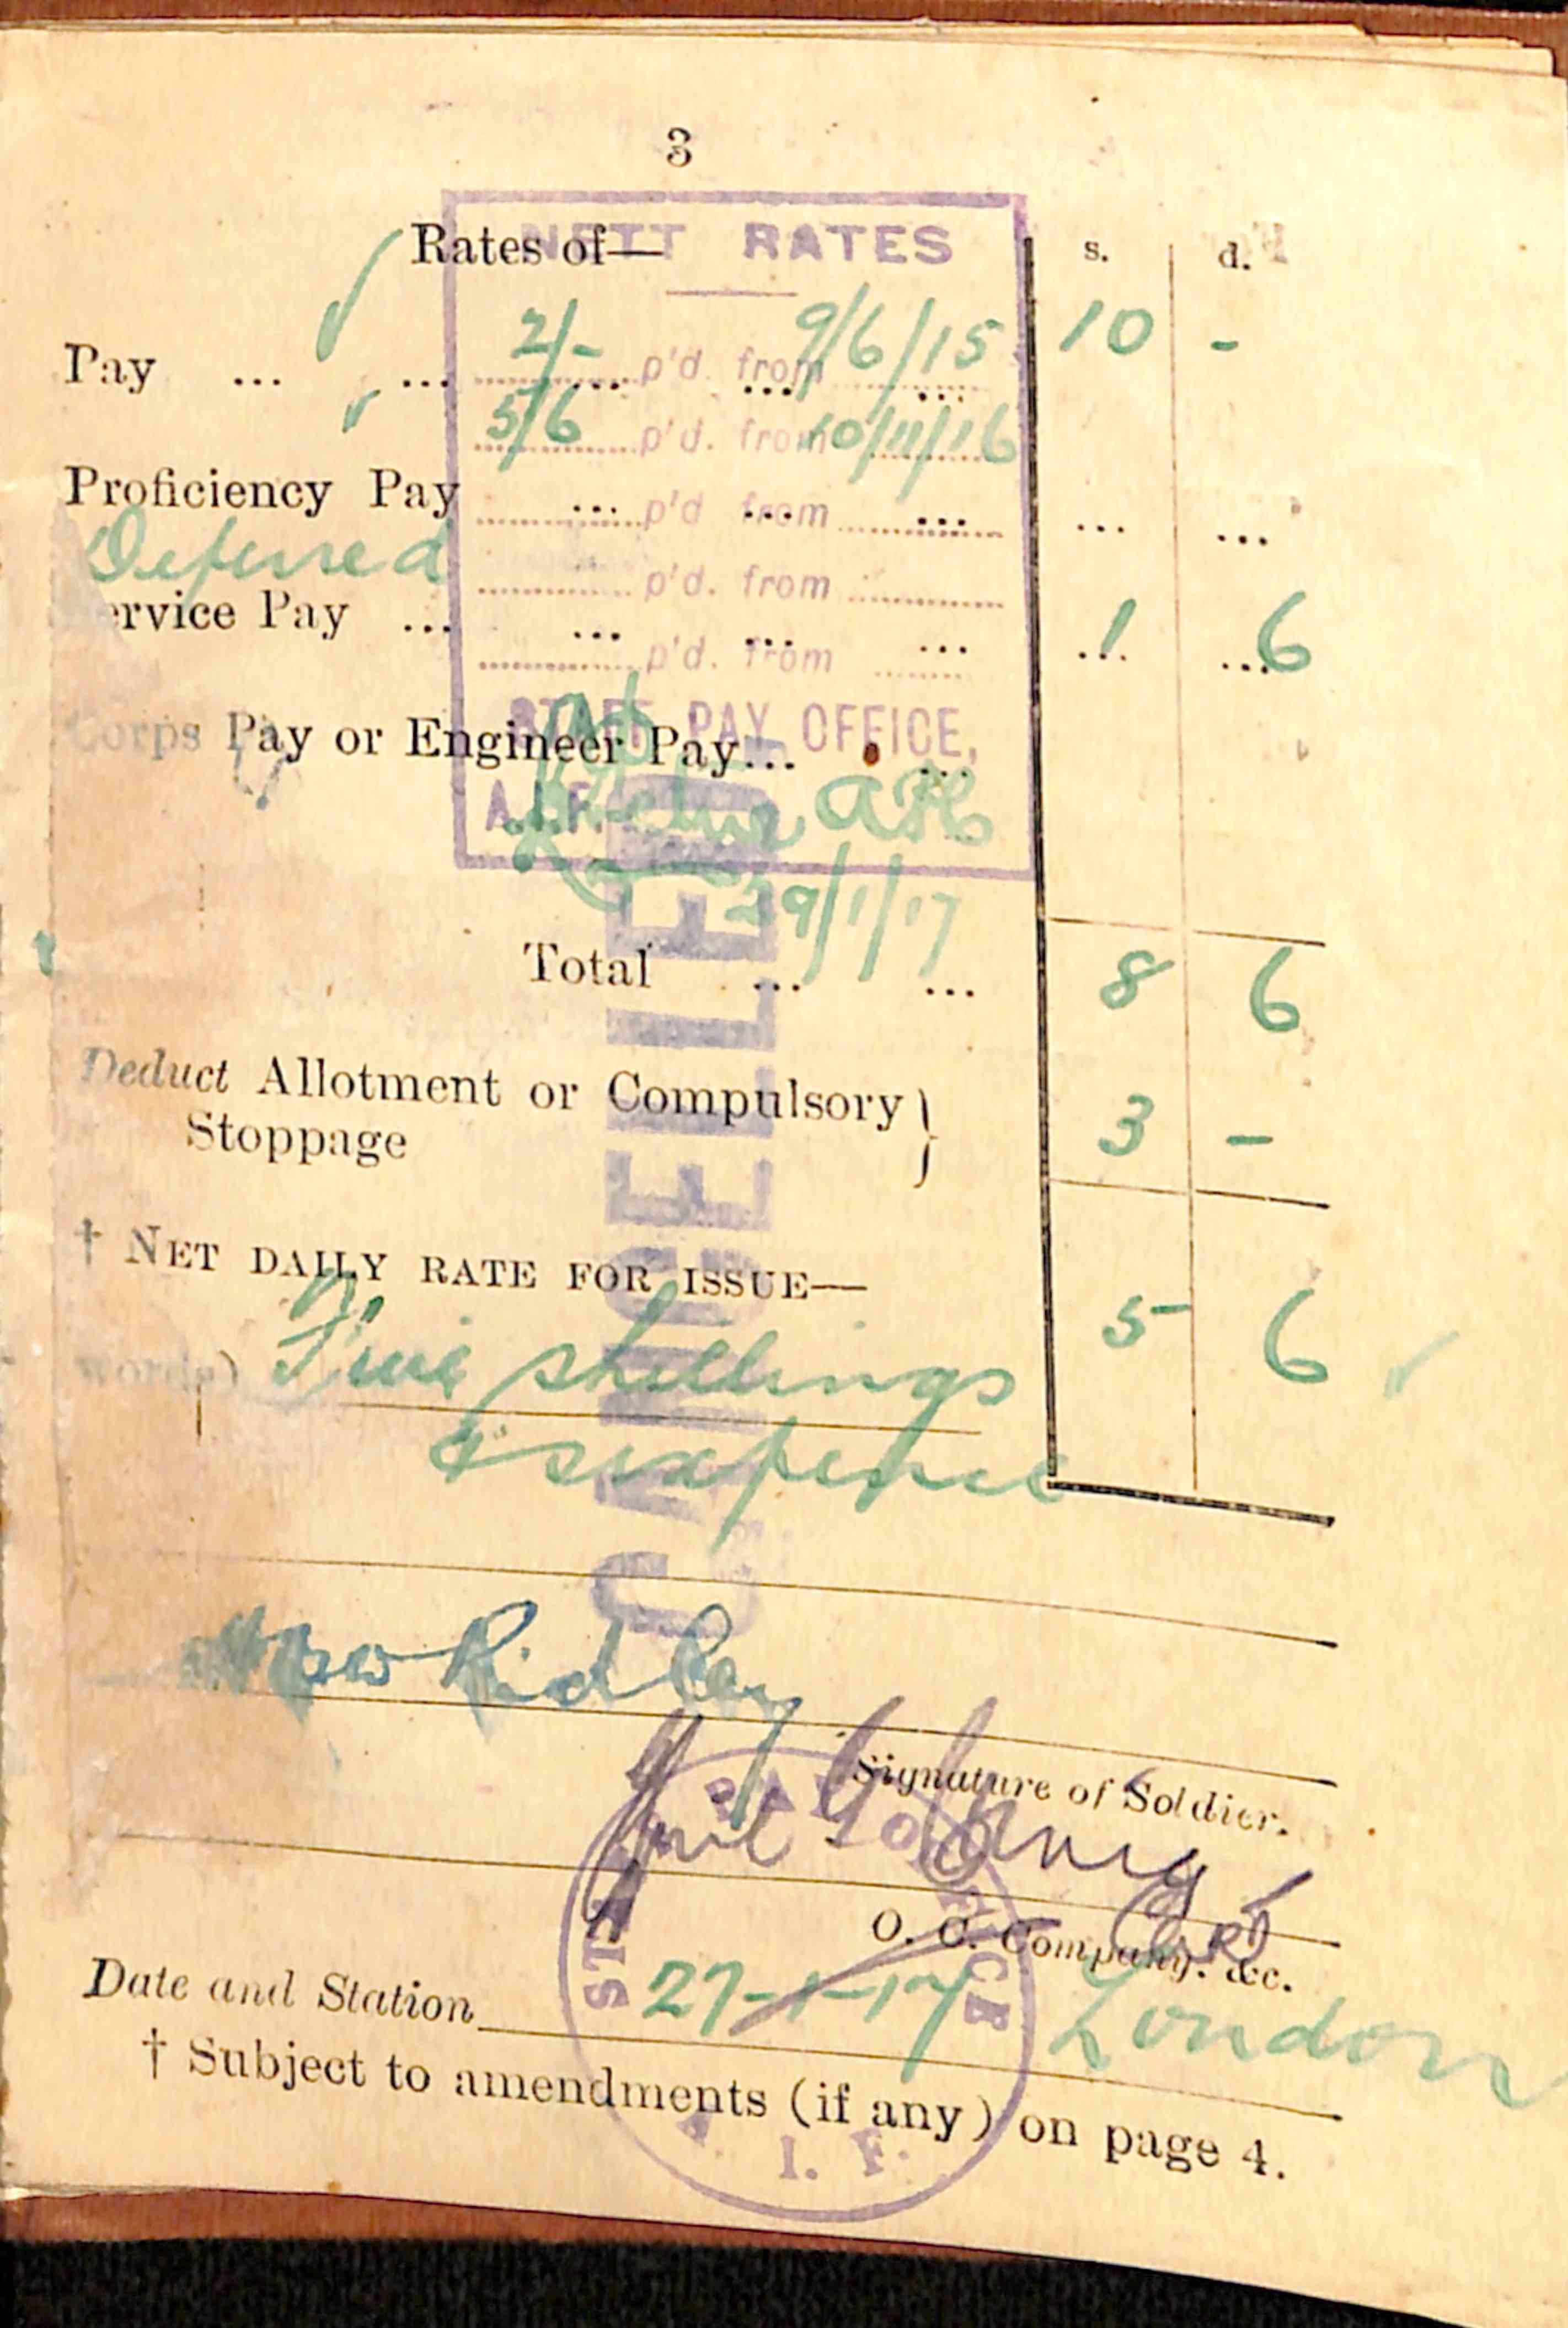 3
Rates of—
NETT RATES
s. d.
Pay ... ... ... ... ... 10 -
2/- p'd. from 9/6/15
5/6 p'd. from 10/11/16
Proficiency Pay ... ... ... ... ...
p'd from
Deferred
p'd. from
Service Pay ... ... ... ... 1 6
p'd. from
STAFF PAY OFFICE,
Corps Pay or Engineer Pay... ...
A.I.F.
29/1/17
Total ... ... 8 6
Deduct Allotment or Compulsory
Stoppage 3 -
† NET DAILY RATE FOR ISSUE— 5 6
words) Five shillings
& sixpence
CANCELLED
Ridley
Signature of Soldier.
O. C. Company. &c.
STAFF PAY OFFICE
Date and Station 27-1-17 London
† Subject to amendments (if any) on page 4.
A. I. F.